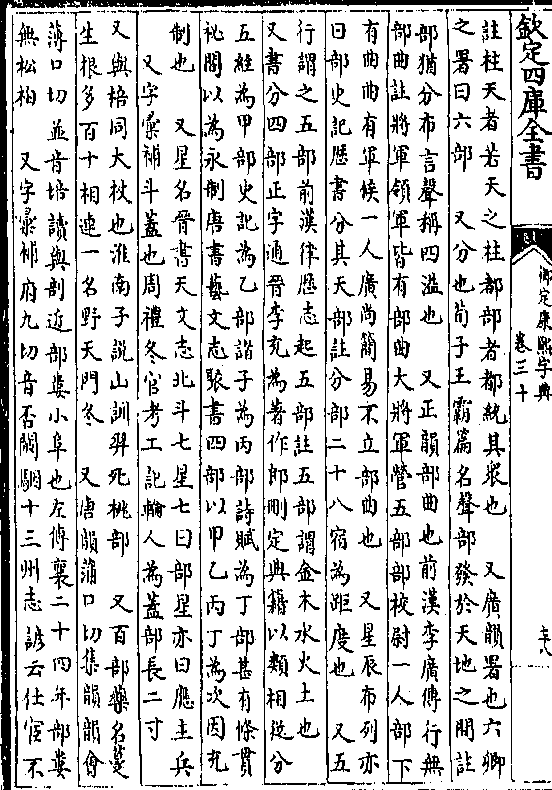 欽定四庫全書
御定康熙字典
卷三十
註柱天者若天之柱都部者都統其衆也　又廣韻署也六卿
之署曰六部　又分也荀子王霸篇名聲部發於天地之間註
部猶分布言聲稱四溢也　又正韻部曲也前漢李廣傳行無
部曲註將軍領軍皆有部曲大將軍營五部部校尉一人部下
有曲曲有軍候一人廣尚簡易不立部曲也　又星辰布列亦
曰部史記歷書分其天部註分部二十八宿為距度也　又五
行謂之五部前漢律歷志起五部註五部謂金木水火土也
又書分四部正字通晉李充為著作郎刪定典籍以類相從分
五經為甲部史記為乙部諸子為丙部詩賦為丁部甚有條貫
祕閣以為永制唐書藝文志裒書四部以甲乙丙丁為次因充
制也　又星名晉書天文志北斗七星七曰部星亦曰應主兵
又字彙補斗蓋也周禮冬官考工記輪人為蓋部長二寸
又與棓同大杖也淮南子說山訓羿死桃部　又百部藥名蔓
生根多百十相連一名野天門冬　又唐韻蒲口切集韻韻會
薄口切並音培讀與剖近部婁小阜也左傳襄二十四年部婁
無松柏　又字彙補府九切音否闞駰十三州志諺云仕宦不